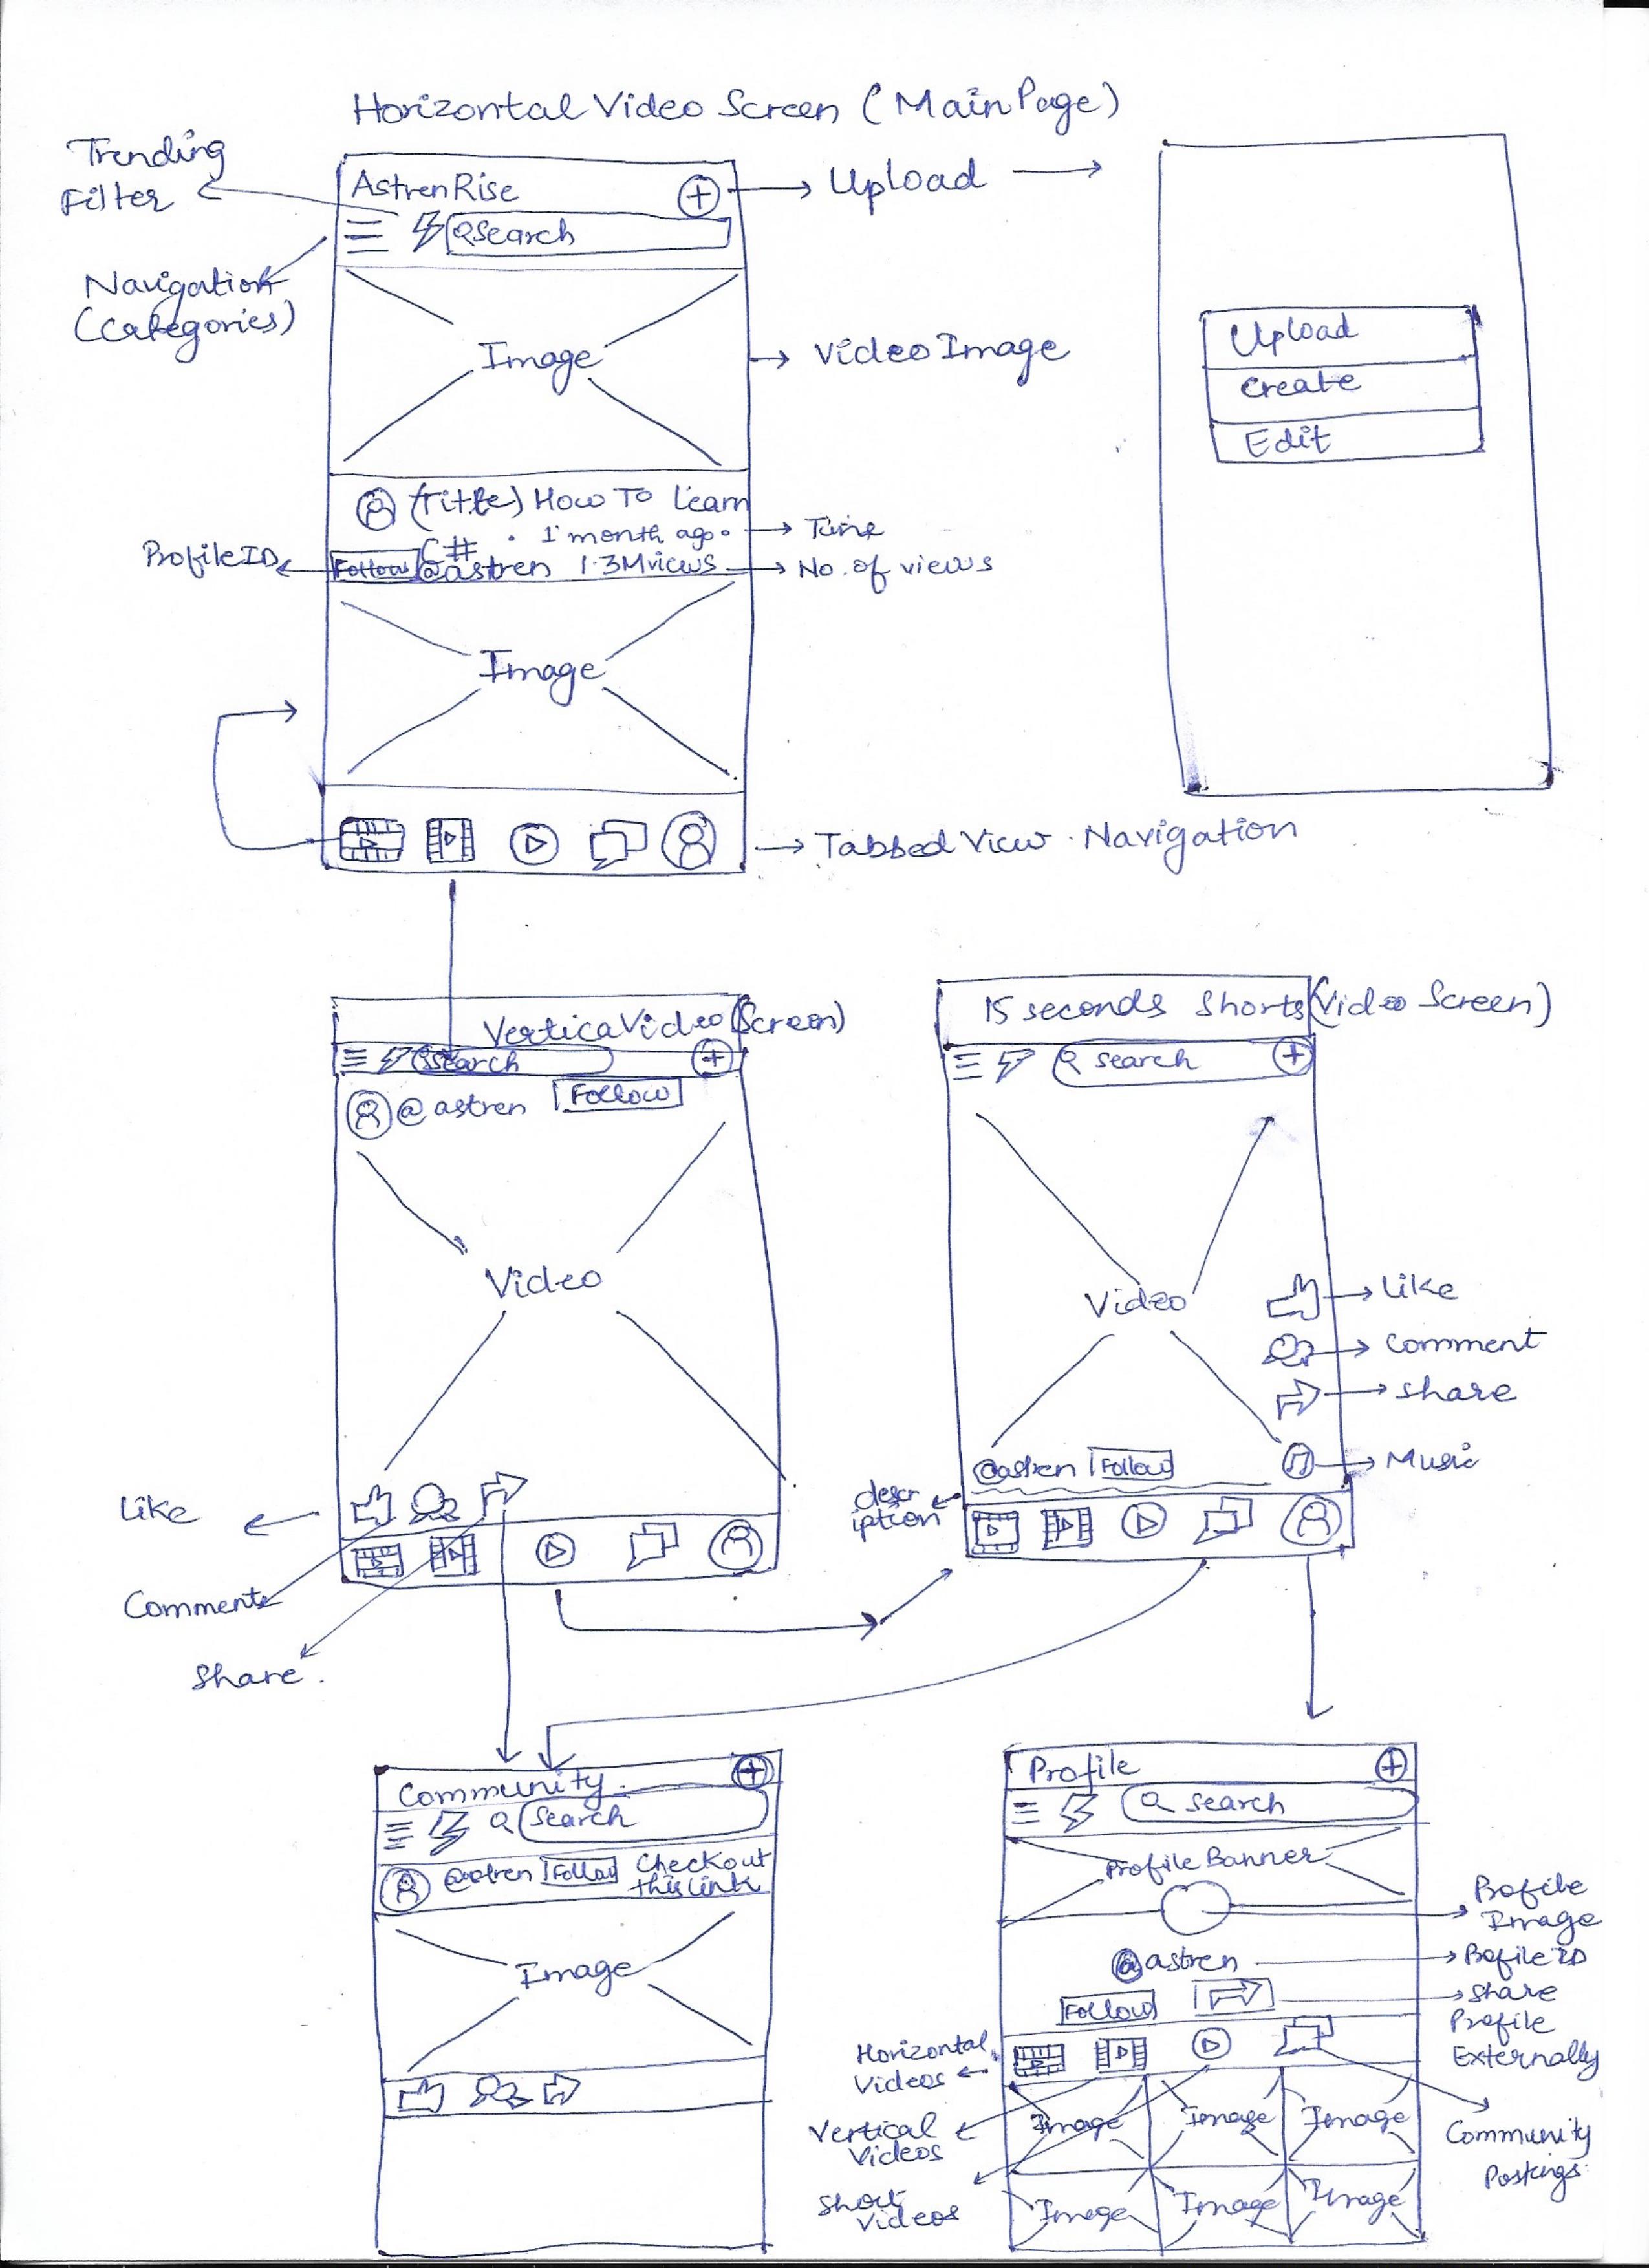 Horizontal Video Screen (Main Page)
Trending
Filter
AstrenRise
Upload
Search
Navigation
(Categories)
Image
Video Image
Upload
Create
Edit
(Title) How To Learn
C# . 1 month ago.
Time
ProfileID
Follow @astren 1.3M views
No. of views
Image
Tabbed View Navigation
VerticaVideo (Screen)
Search
@astren Follow
Video
Like
Comment
Share.
15 seconds Shorts (Video Screen)
Search
Video
Like
Comment
Share
@astren Follow
Music
descr
iption
Community
Search
@astren Follow Checkout
this link
Image
Profile
Search
Profile Banner
Profile
Image
@astren
Profile ID
Follow
Share
Profile
Externally
Horizontal
Videos
Vertical
Videos
Short
Videos
Image Image Image
Image Image Image
Community
Postings